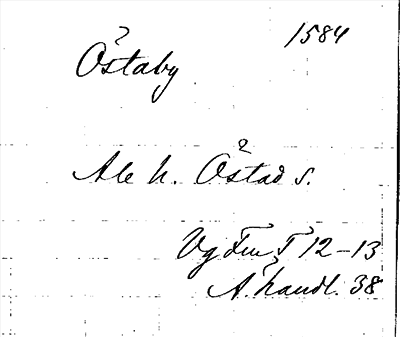 1584
Östaby
Ale h. Östad s.
Vg Fmt 12-13
A. handl. 38